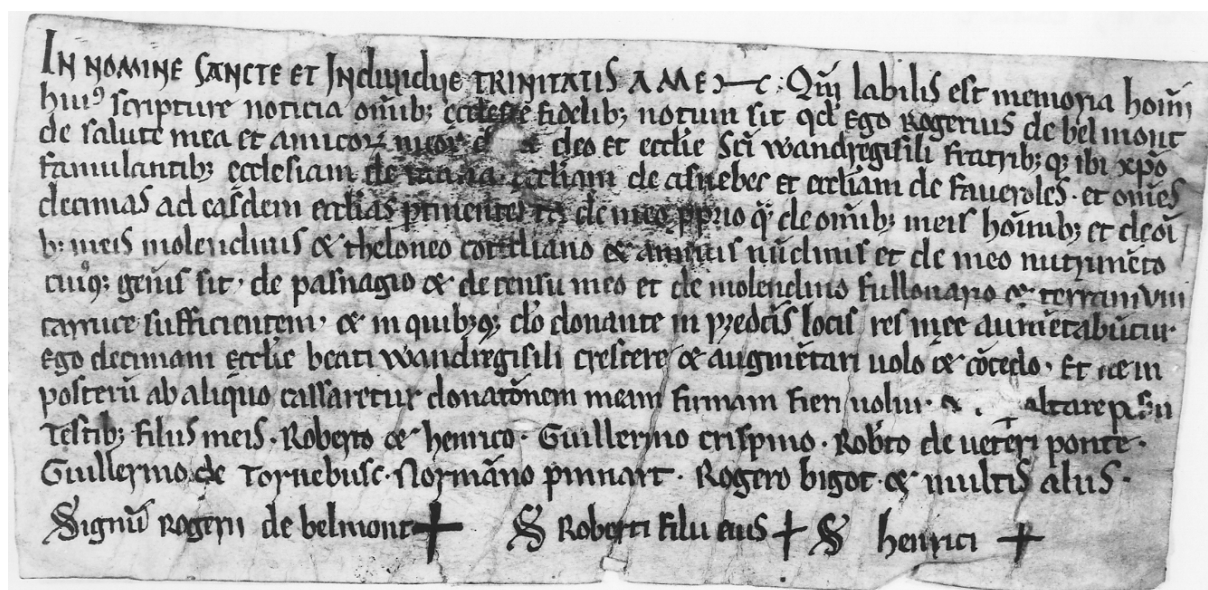 IN NOMINE SANCTE ET INdiuiduE TRINITATIS AMEN : Qm̄ labilis est memoria homin̄
huiꝰ scripture noticia om̄ib; ecclesie fidelib; notum sit qđ Ego Rogerius de belmont
de salute mea et amicoꝝ meoꝝ deo et ecclie Sc̄i wandregisili fratrib; q; ibi xp̄o
famulantib; ecclesiam de ecc̄liam de asnebec et ecc̄liam de faueroles · et om̄es
decimas ad easdem ecc̄lias ꝑtinentes de meo ꝓprio qͣ de om̄ib; meis hoīnib; et de oī
b; meis molendinis & theloneo & annuis nūdinis et de meo nutrim̄eto
cuiꝰq; gen̄is sit · de pasnagio & de censu meo et de molendino fullonario & terram VIII
carruce sufficientem · & in quib;q; dō donante in p̄edc̄is locis res mee aum̄etabūtur
Ego decimam ecclie beati wandregisili crescere & augm̄etari uolo & cōcedo · Et ne in
posterū ab aliquo cassaretur donatōnem meam firmam fieri uolui · & altare
Testib; filiis meis · Roberto & henrico · Guillermo crispino · Rob̄to de ueteri ponte ·
Guillermo de Tornebusc · Normāno pinnart · Rogero bigot & multis aliis ·
Signū Rogerii de belmont + S Roberti filii eius + S henrici +